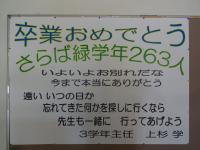 卒業おめでとう
さらば緑学年263人
いよいよお別れだな
今まで本当にありがとう
遠い いつの日か
忘れてきた何かを探しに行くなら
先生も一緒に 行ってあげよう
3学年主任 上杉 学